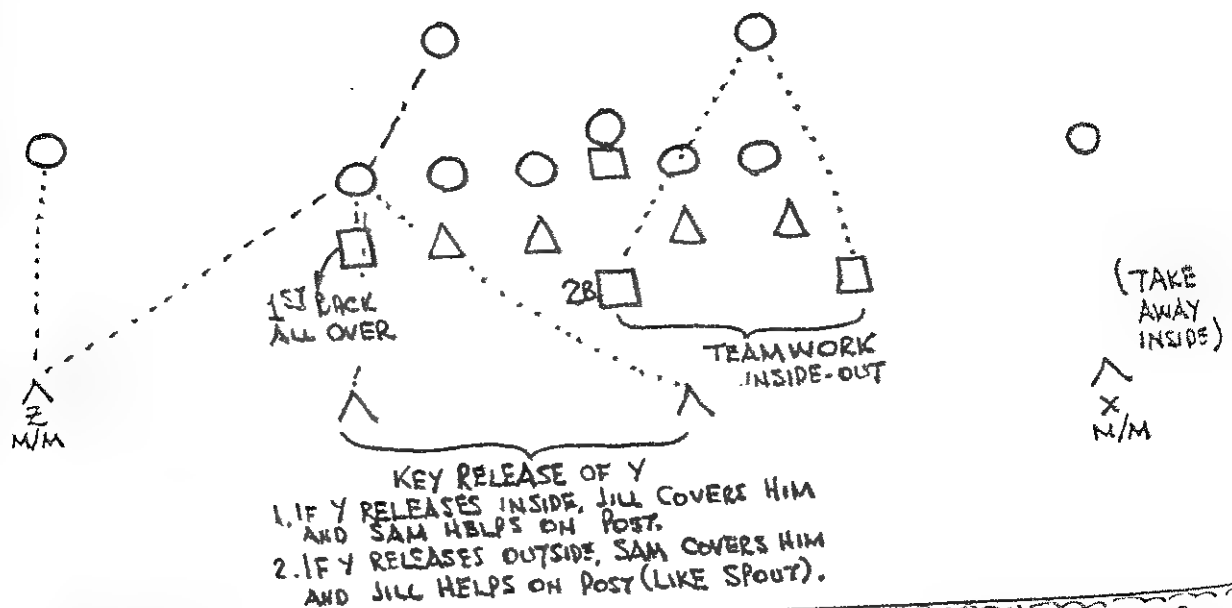 1ST BACK
ALL OVER
2B
TEAMWORK
INSIDE-OUT
(TAKE
AWAY
INSIDE)
Z
M/M
X
M/M
KEY RELEASE OF Y
1. IF Y RELEASES INSIDE, JILL COVERS HIM
AND SAM HELPS ON POST.
2. IF Y RELEASES OUTSIDE, SAM COVERS HIM
AND JILL HELPS ON POST (LIKE SPOUT).